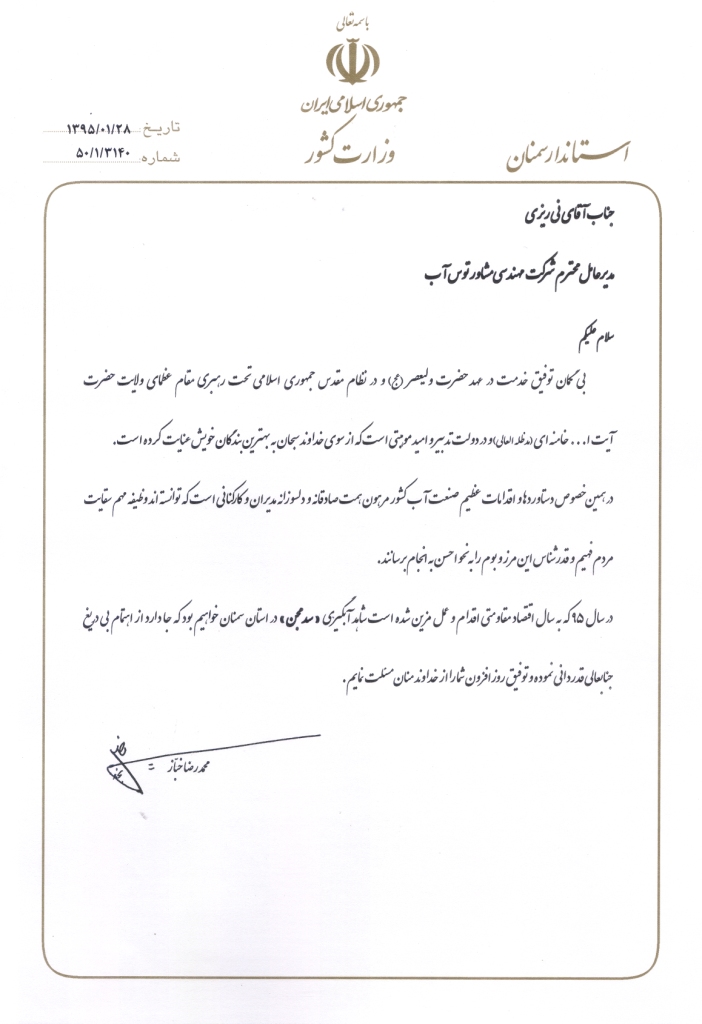 باسمه تعالی
جمهوری اسلامی ایران
وزارت کشور
استاندار سمنان
تاریخ ۱۳۹۵/۰۱/۲۸
شماره ۵۰/۱/۳۱۴۰
جناب آقای نی ریزی
مدیرعامل محترم شرکت مهندسی مشاور توس آب
سلام علیکم
بی گمان توفیق خدمت در عهد حضرت ولیعصر (عج) و در نظام مقدس جمهوری اسلامی تحت رهبری مقام عظمای ولایت حضرت
آیت ا... خامنه ای (مدظله العالی) و در دولت تدبیر و امید موهبتی است که از سوی خداوند سبحان به بهترین بندگان خویش عنایت کرده است.
در همین خصوص دستاوردها و اقدامات عظیم صنعت آب کشور مرهون همت صادقانه و دلسوزانه مدیران و کارکنانی است که توانسته اند وظیفه مهم سقایت
مردم فهیم و قدرشناس این مرز و بوم را به نحو احسن به انجام برسانند.
در سال ۹۵ که به سال اقتصاد مقاومتی اقدام و عمل مزین شده است شاهد آبگیری «سد مجن» در استان سمنان خواهیم بود که جا دارد از اهتمام بی دریغ
جنابعالی قدردانی نموده و توفیق روز افزون شما را از خداوند منان مسئلت نمایم.
محمدرضا خباز